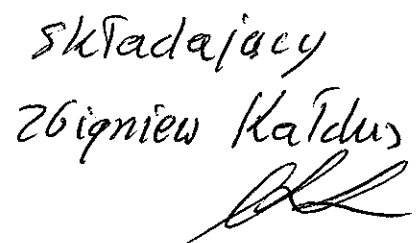 składający
Zbigniew Kałdus